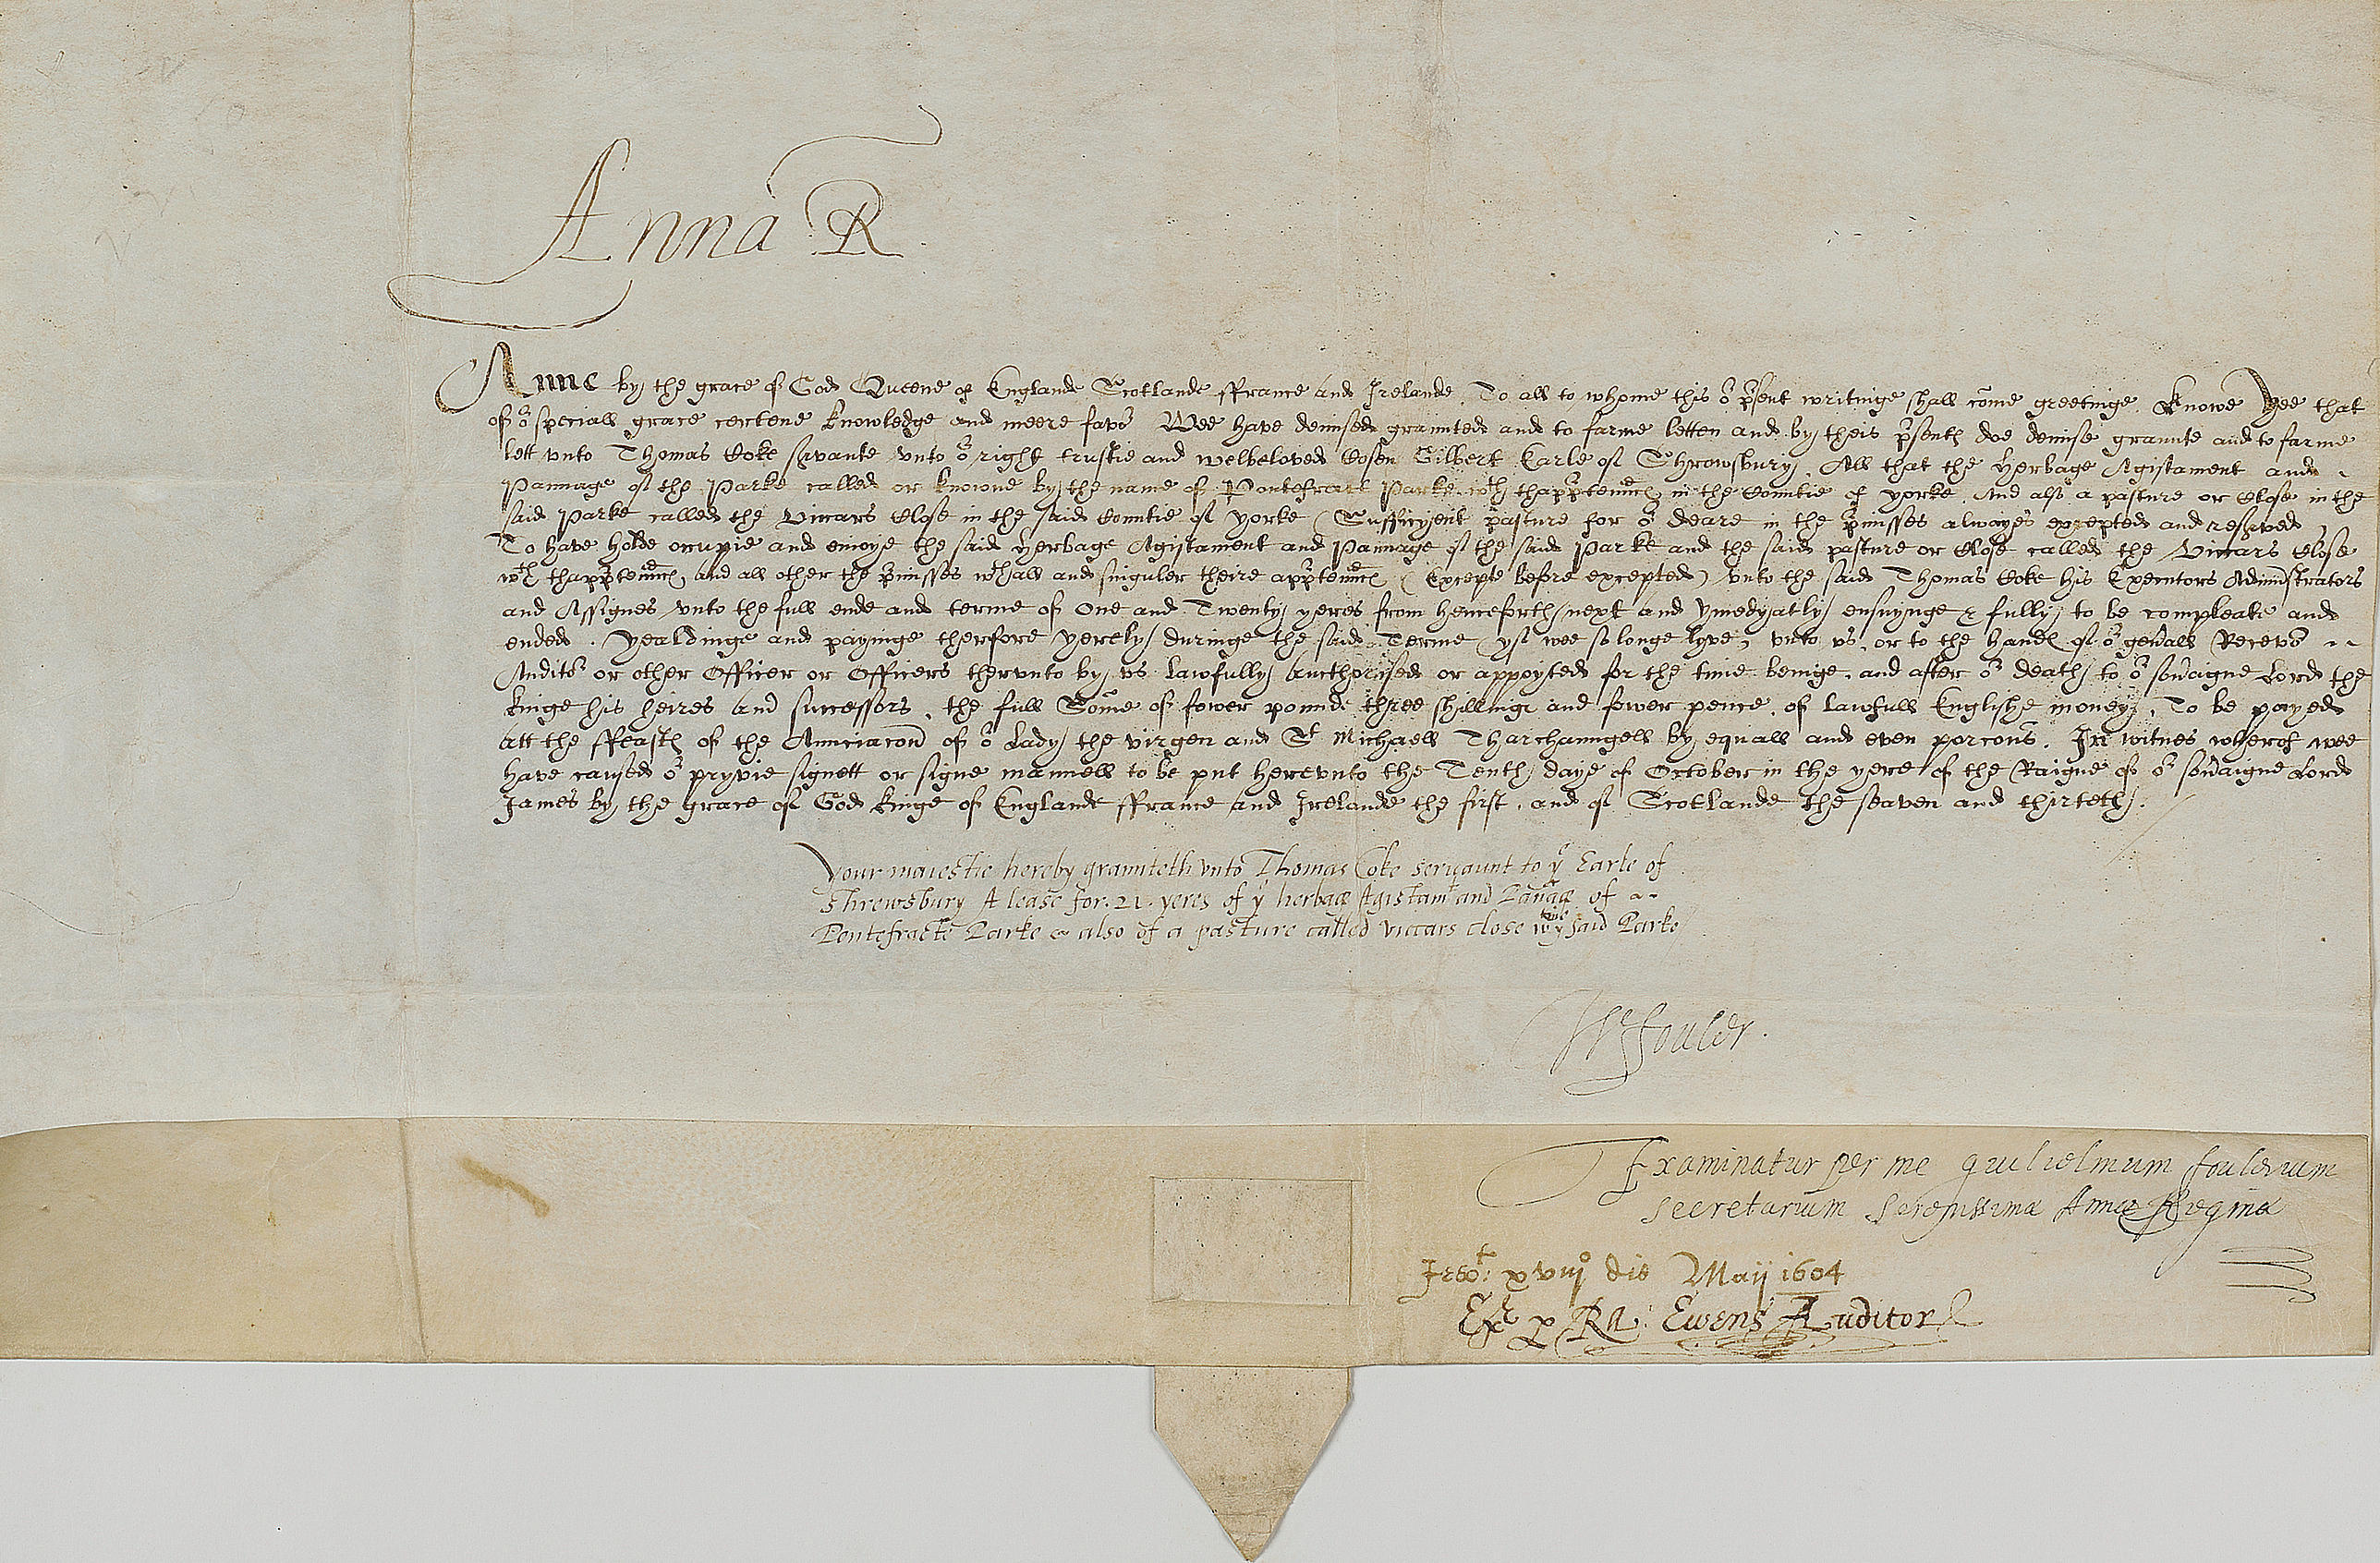 Anna R
Anne by the grace of God Queene of Englande Scotlande ffrance and Irelande. To all to whome this oͬ pͬsent writinge shall com̄e greetinge. Knowe Yee that
of oͬ speciall grace certene knowledge and meere favoͬ Wee have demised graunted and to farme letten and by theis pͬsents doe demise graunte and to farme
lett vnto Thomas Coke servante vnto oͬ right trustie and welbeloved Cosen Gilbert Earle of Shrowsbury. All that the Herbage Agistament and
Pannage of the Parke called or knowne by the name of Pontefract Parke wth thapp̄tennͨes in the Countie of Yorke. And also a pasture or Close in the
said Parke called the Viccars Close in the said Countie of Yorke (Sufficyent pasture for oͬ deare in the p̄misses alwayes excepted and reserved)
To have holde occupie and enioye the said Herbage Agistament and Pannage of the said Parke and the said pasture or Close called the Viccars Close
wth thapp̄tennͨes, and all other the p̄misses wth all and singuler theire app̄tennͨes (Excepte before excepted) vnto the said Thomas Coke his Executors Administrators
and Assignes vnto the full ende and terme of One and Twenty yeres from henceforth next and ymedyatly ensuynge & fully to be compleate and
ended. Yealdinge and payinge therfore yerely duringe the said Terme yf wee so longe lyve, vnto vs, or to the hands of oͬ gen̄all Recevoͬ
Auditoͬ or other Officer or Officers thervnto by vs lawfully aucthorised or appoyted for the time beinge. and after oͬ death to oͬ sov̄aigne Lord the
kinge his heires and successors, the full Som̄e of fower pounde three shillings and fower pence, of lawfull Englishe money, To be payed
att the ffeasts of the Annciacon̄ of oͬ Lady the virgen and St Michaell Tharchanngell by equall and even porcon̄s. In witnes wherof wee
have caused oͬ pryvie signett or signe manuell to be put herevnto the Tenth daye of October in the yere of the Raigne of oͬ sov̄aigne Lord
James by the grace of God kinge of Englande ffrance and Irelande the first, and of Scotlande the seaven and thirteth.
Your maiestie hereby graunteth vnto Thomas Coke servaunt to yͤ Earle of
Shrewsbury A lease for .21. yeres of yͤ herbage Agistamt and Panage of
Pontefracte Parke & also of a pasture called viccars close wthin yͤ said Parke
Wͤ ffouler.
Examinatur per me Gulielmum foulerum
secretarium serenissimæ Annæ Reginæ
Irrot: xviijͦ die Maij 1604
Exͬ p Ra: Ewens Auditor